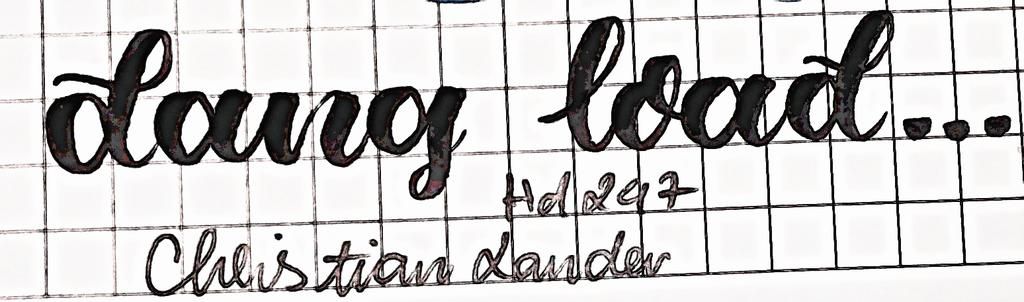 dang load...
Hd 297
Christian Lander